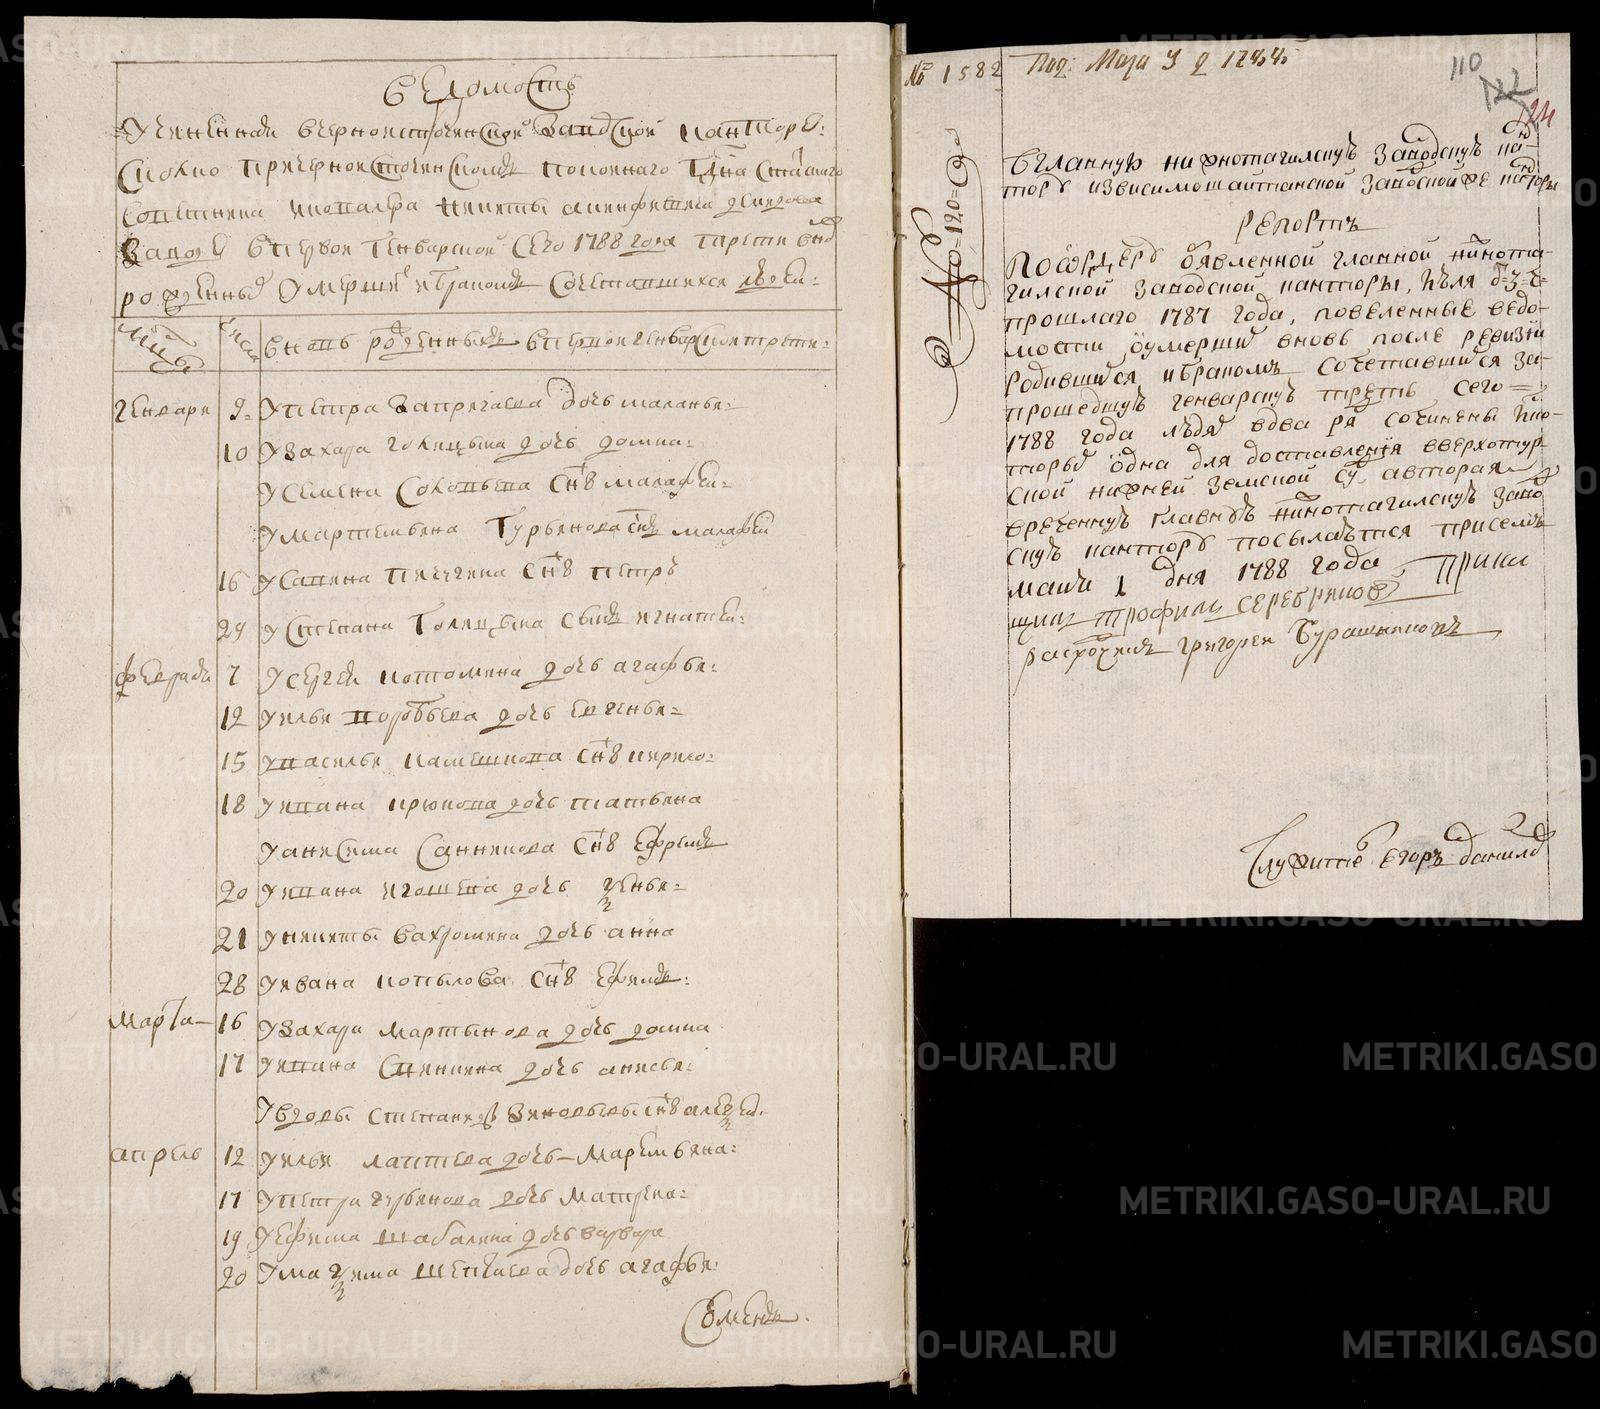 Ведомость
Учененная вчерноисточенской заводской канторе:
Сколко причерноисточенскомъ покоинаго Гдна статскаго
советника икавалера никиты акинфиевича демидова
Заводе впервои генварской сего 1788 года трети вно
рожденныхъ умершихъ ибракомъ сочетавшихся людеи:
числа
вновь рожденныхъ впервои генварскои трети:
генваря
9 = Упетра Запрегаева дочь маланья:
10 Узахара голицына дочь домна:
Усемена Соловьева снъ малафеи:
Умартемьяна Гурьянова снъ малафеи
16 Усавина пичугина снъ петръ
29 Устепана Голицына сынъ игнатеи:
февраля 7 Усергея котомина дочь агафья:
12 Уильи воробьева дочь евгенья:
15 Увасилья камешкова снъ кирило:
18 Уивана крюкова дочь татьяна
Уанисима Санникова снъ Ефремъ
20 Уивана игошева дочь
21 Уникиты вахромеева дочь анна
28 Уивана копылова снъ Ефимъ:
Марта 16 Узахара мартынова дочь домна
17 Уивана дочь анисья:
Увдовы степаниды Зиновьевы снъ алексеи.
апрель 12 Уильи лаптева дочь Маремьяна:
17 Упетра гурьянова дочь матрена:
19 Уефима шабалина дочь варвара
20 Умаѯима дочь агафья:
№ 1582 Под: Маия 3 д 1788
110
122
124
№ = 120 =
Вглавную нижнотагилскую заводскую кан-
тору извисимошайтанской заводской же канторы
репортъ
Поордеру объявленной главной нижнота-
гилской заводской канторы,
прошлаго 1787 года, повеленные ведо-
мости оумершихъ вновь после ревизии
родившихся ибракомъ сочетавшихся за-
прошедшую генварскую треть сего =
1788 года людяхъ вдва ряда сочинены ико-
торыхъ одна для доставления вверхотур-
ской нижней земской судъ авторая
вреченную главную нижнотагилскую заво
скую кантору посылается присемъ
маия 1 дня 1788 года Прика
щикъ трофимъ серебряковъ
расхотчикъ григореи Бурашниковъ
Служитель егоръ данилов